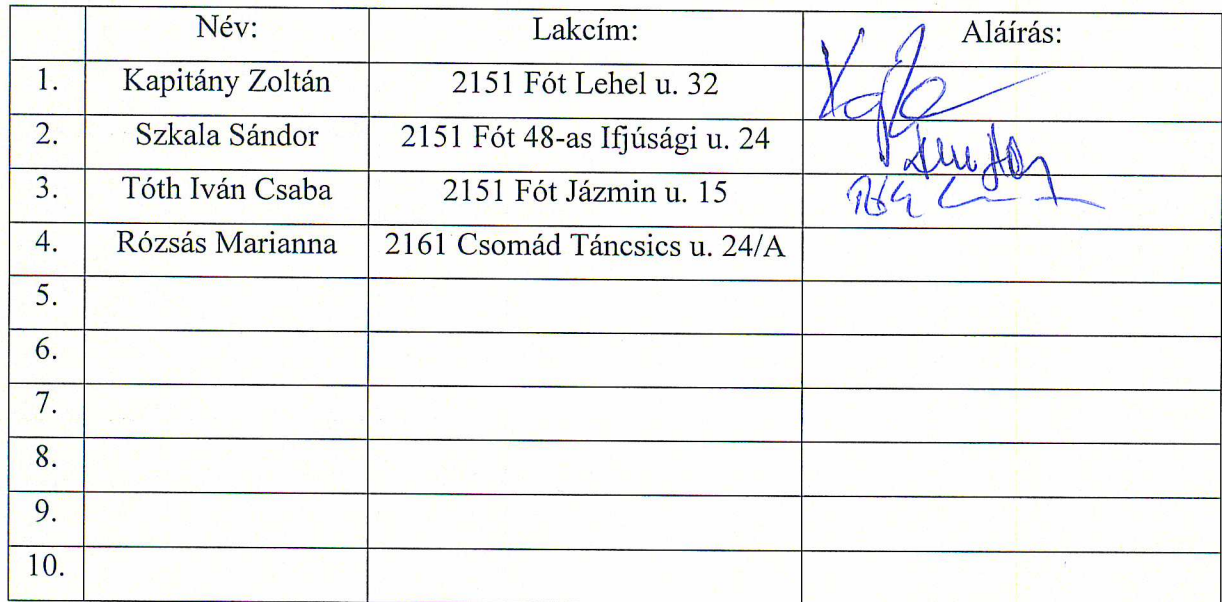 Név: Lakcím: Aláírás:
1. Kapitány Zoltán 2151 Fót Lehel u. 32
2. Szkala Sándor 2151 Fót 48-as Ifjúsági u. 24
3. Tóth Iván Csaba 2151 Fót Jázmin u. 15
4. Rózsás Marianna 2161 Csomád Táncsics u. 24/A
5.
6.
7.
8.
9.
10.